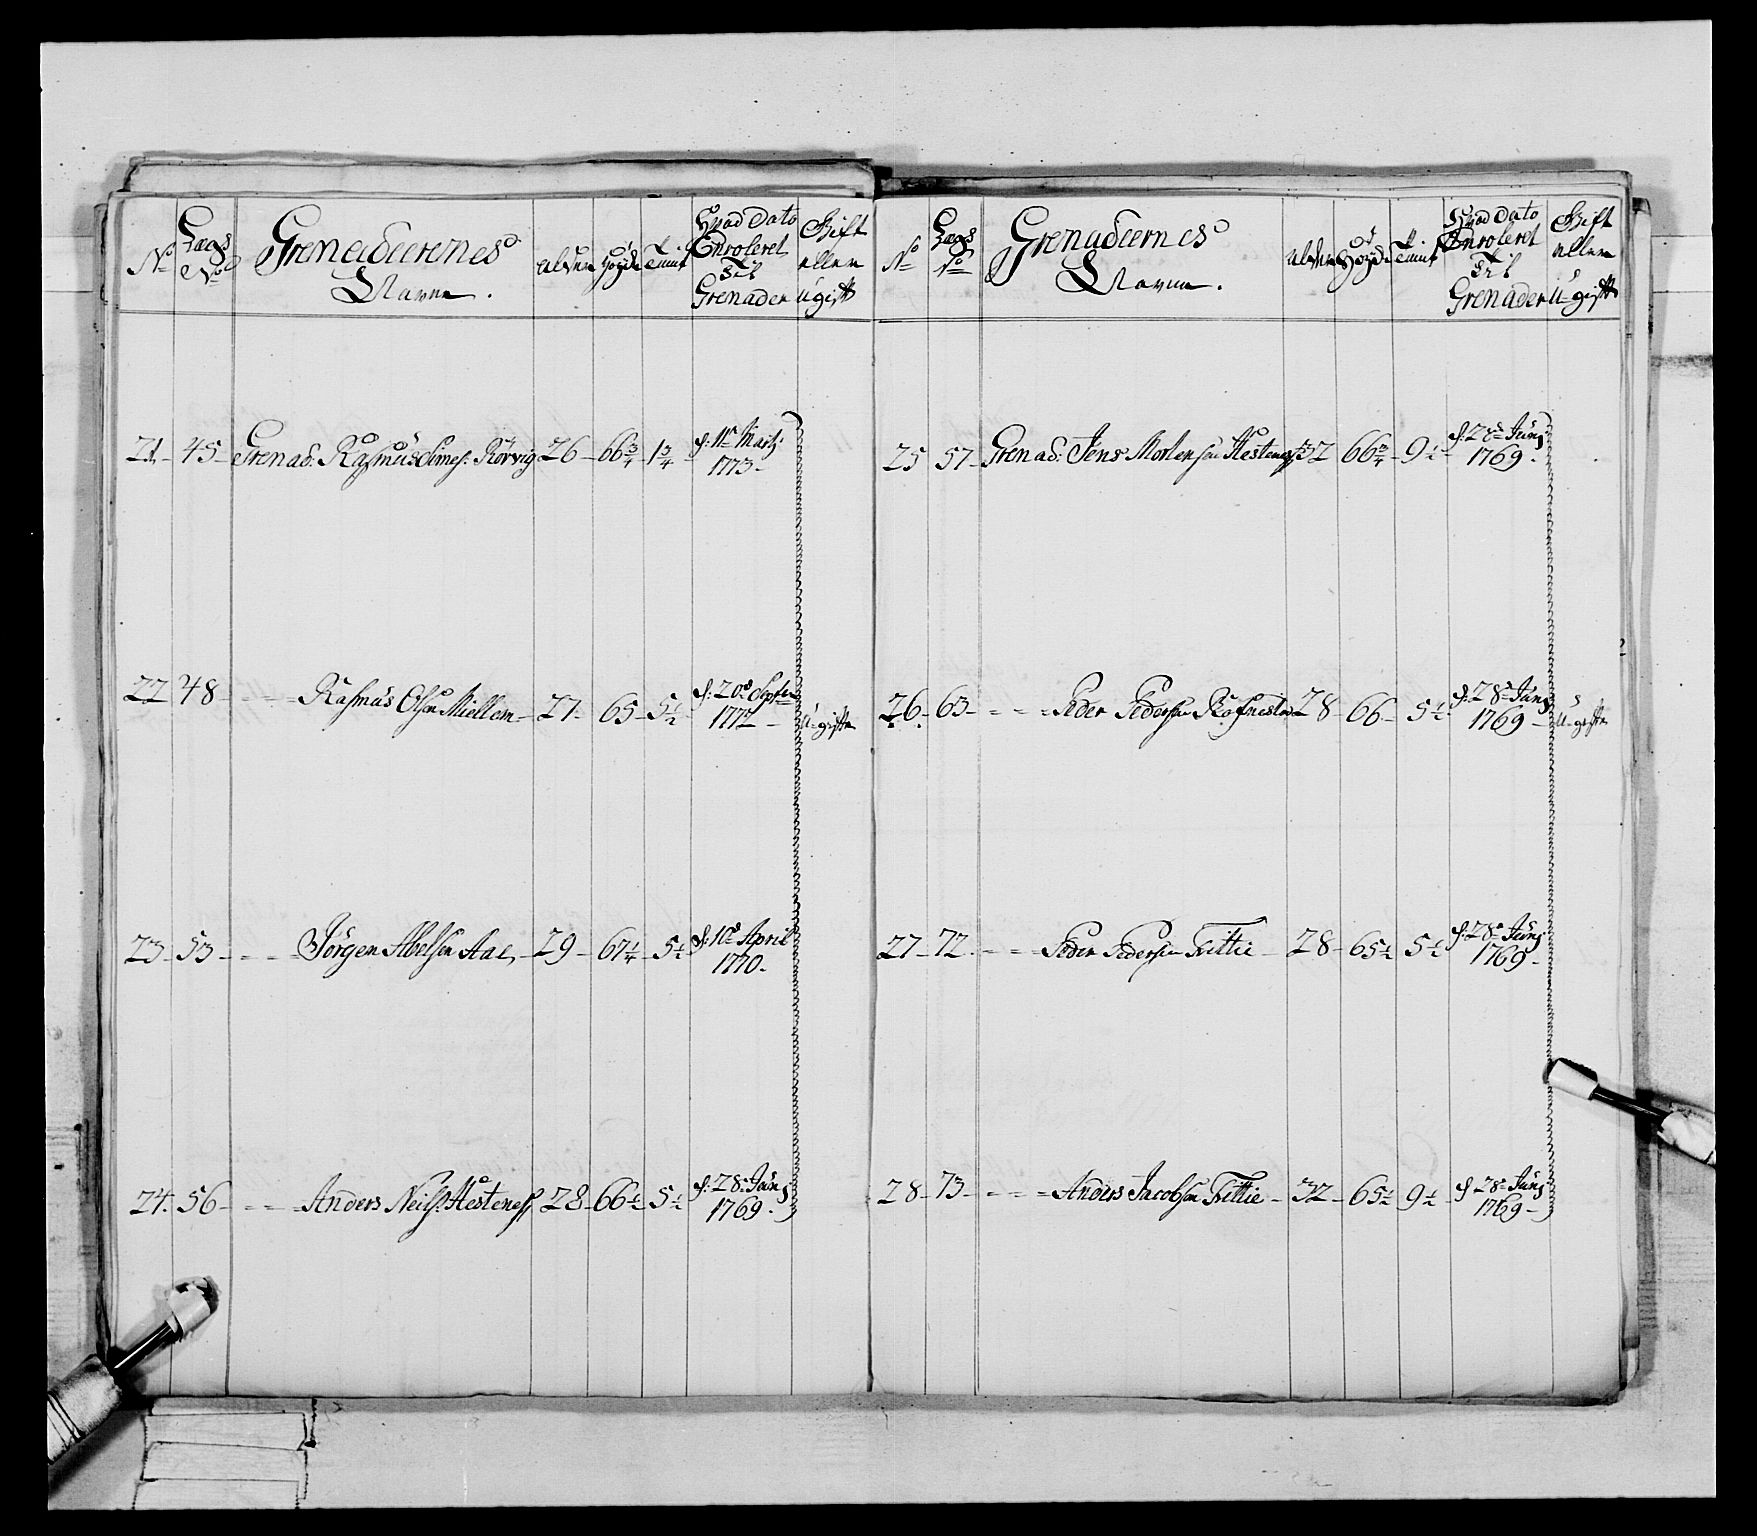 No | Lægs No | Grenadeerenes Navne. | Alder | Høyde | Tient | Hvad Dato Enroleret Til Grenader | Gift eller Ugift
21 - 45 - Grenad: Rasmus Simes: Rörvig 26 - 66 3/4 - 1 3/4 - d: 11te Martj
1773 -
22 48 - - - - Rasmus Olsen Miellem - 27 - 65 - 5 1/2 - d: 20de Septr
1772 - Ugifte
23 - 53 - - - - Jørgen Abelsen Aae - 29 - 67 1/4 - 5 1/2 d: 10de April
1770 -
24 - 56 - - - - Anders Neils: Hestenesss 28 - 66 1/2 - 5 1/2 - d: 28de Junj
1769 -
No | Lægs No | Grenadeernes Navne. | Alder | Høyde | Tient | Hvad Dato Enroleret Til Grenader | Gift eller U-gift
25 57 - Grenad: Jens Mortensen Hestenes 32 66 3/4 - 9 1/2 - d: 28de Junj
1769 -
26 - 63 - - - - Peder Pedersen Rofnestad 28 - 66 - 5 1/2 - d: 28de Junj
1769 - U-gifte
27 - 72 - - - - Peder Pedersen Tittie - 28 - 65 1/2 - 5 1/2 d: 28de Junj
1769 -
28 - 73 - - - - Anders Jacobsen Tittie - 32 - 65 1/2 - 9 1/2 - d: 28de Junj
1769 -